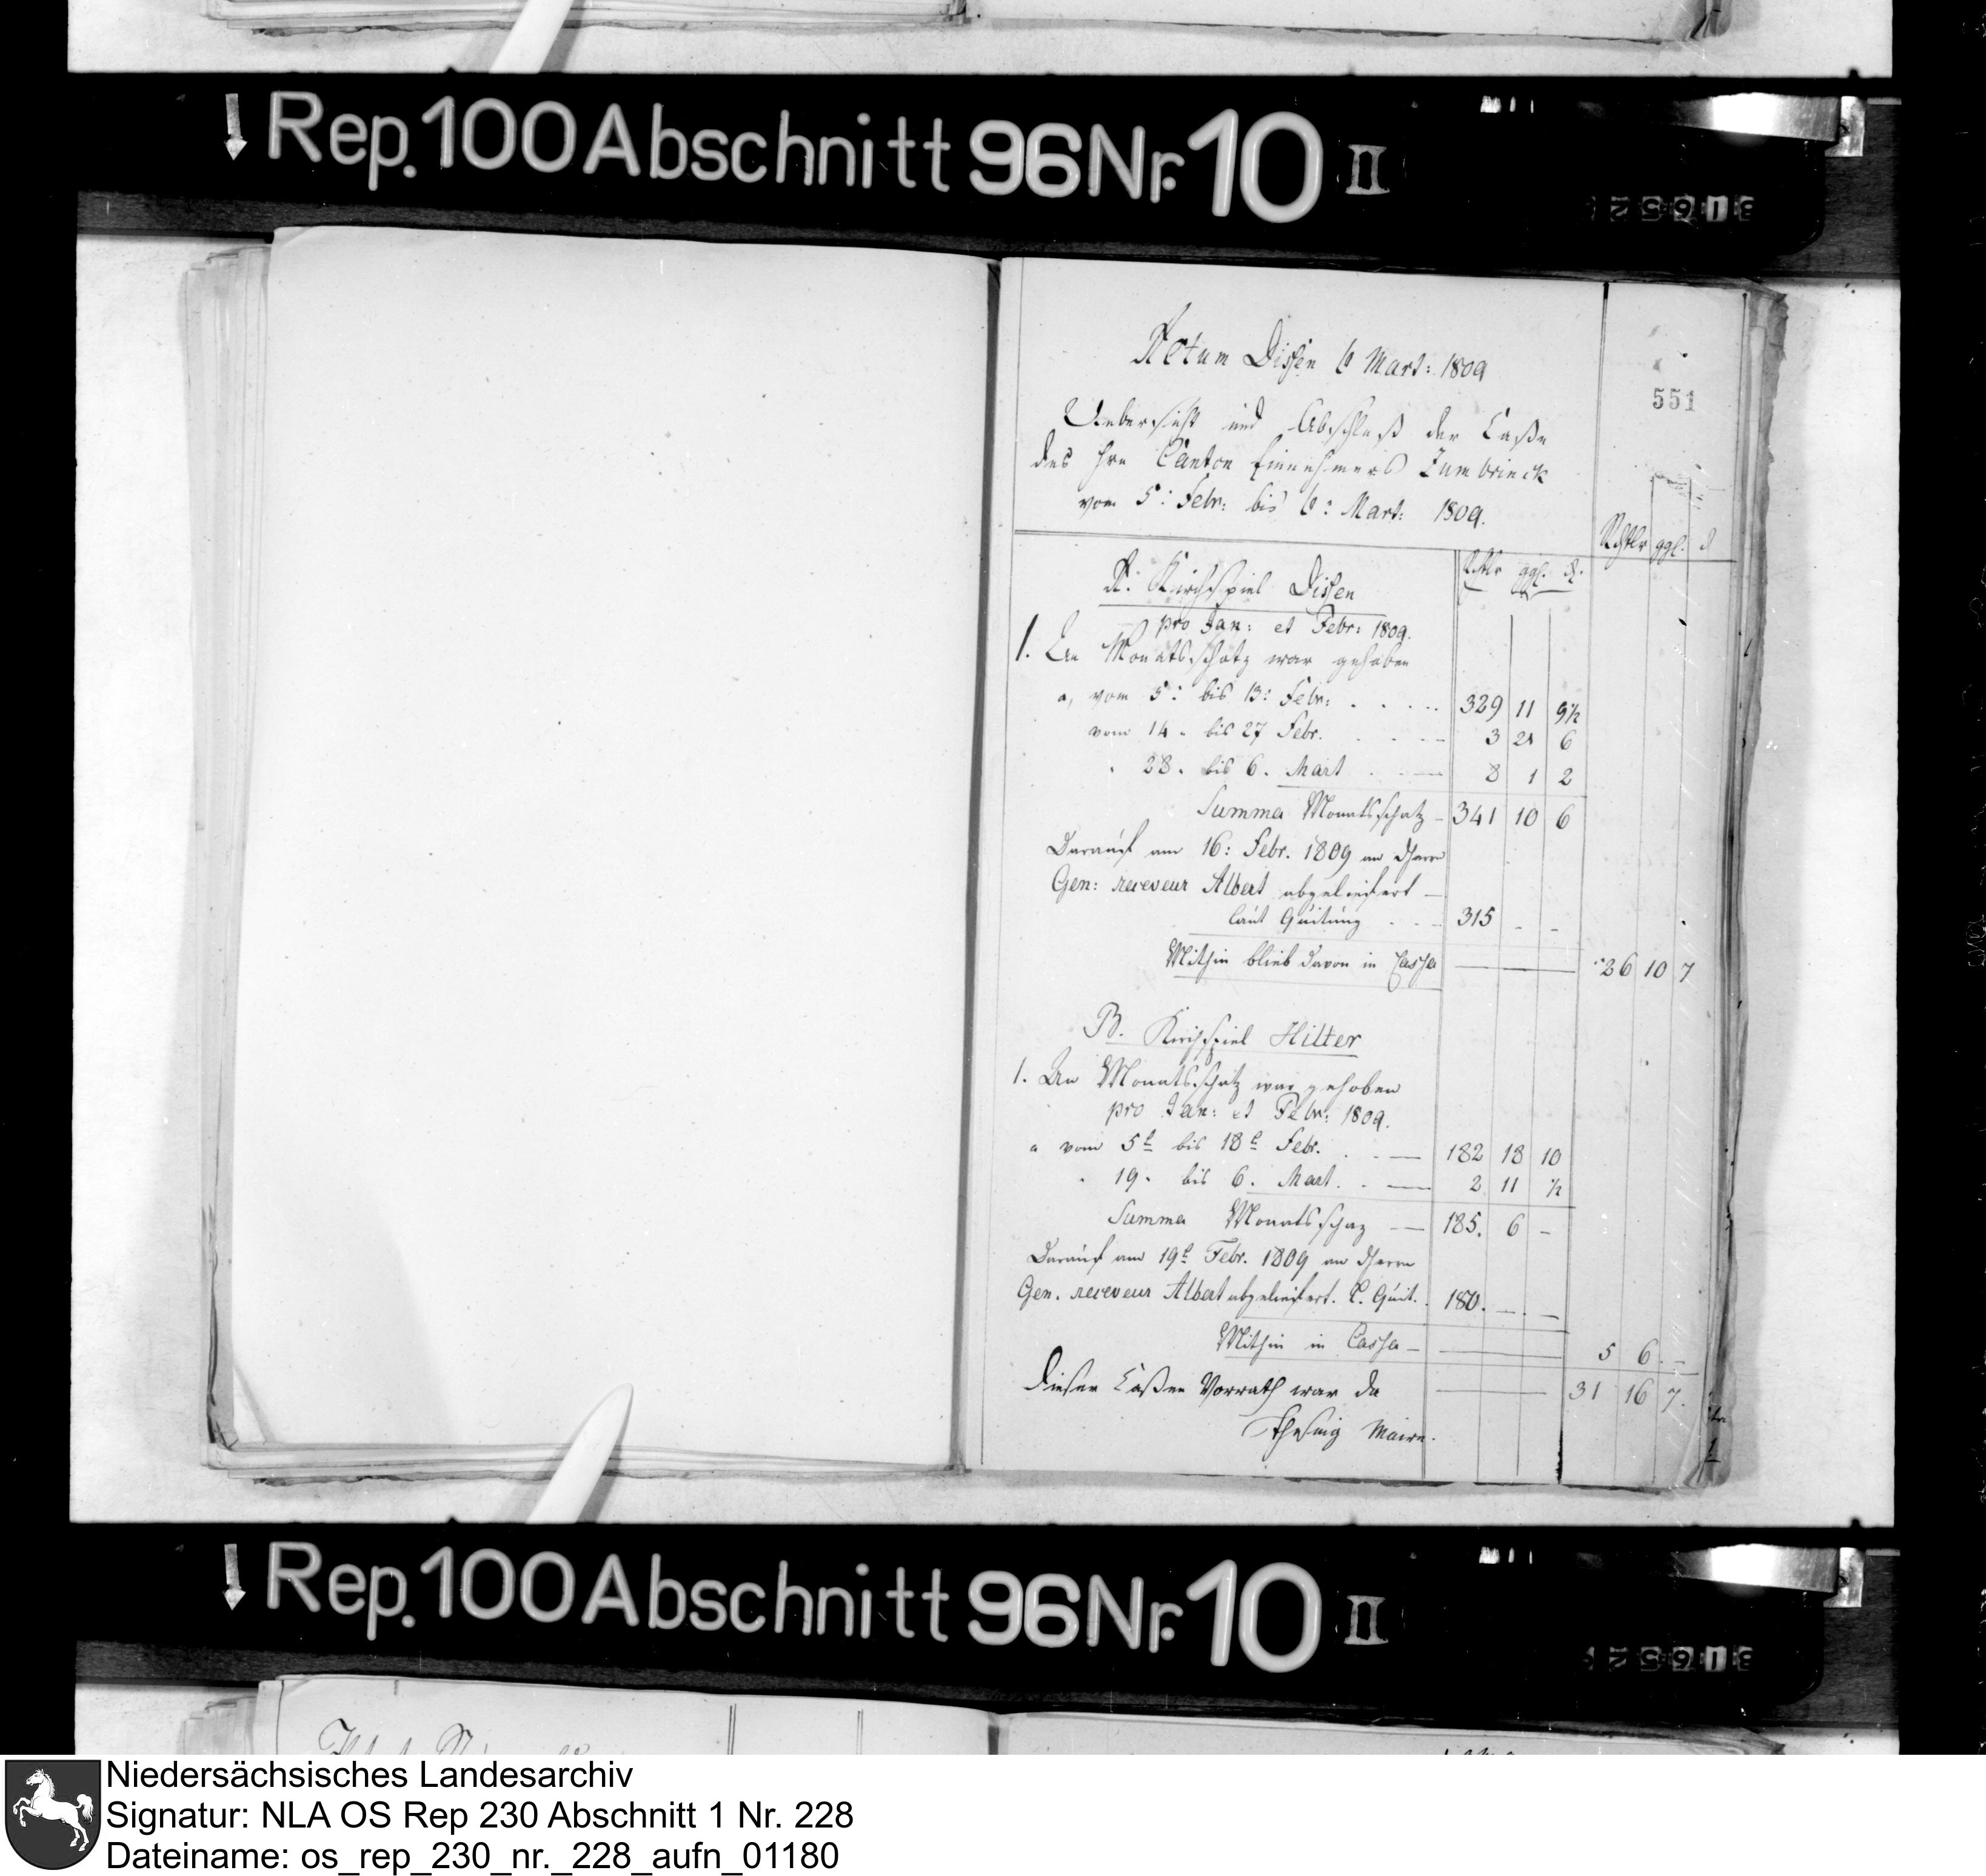 Rep. 100 Abschnitt 96 Nr. 10 II
Actum Dißen 6 Mart: 1809
551
Uebersicht und Abschluß der Caße
des Hrn Canton Einnehmers Zumbrinck
vom 5: Febr: bis 6: Mart: 1809.
Rthlr ggl. d
A. Kirchspiel Dißen
Rthlr ggl. d.
pro Jan: et Febr: 1809.
1. An Monatsschatz war gehoben
a, vom 5: bis 13: Febr: . . . . . 329 11 9½
vom 14. bis 27 Febr. . . . — 3 21 6
" 28. bis 6. Mart . . — 8 1 2
Summa Monatsschatz – 341 10 6
Darauf am 16: Febr. 1809 an Herrn
Gen: receveur Albert abgeliefert —
laut Quitung . . . 315 - -
Mithin blieb davon in Cassa — 26 10 7
B. Kirchspiel Hilter
1. An Monatsschatz war gehoben
pro Jan: et Febr: 1809.
a vom 5t bis 18t Febr. . . — 182 18 10
" 19. bis 6. Mart. . — 2 11 ½
Summa Monatsschaz — 185. 6 –
Darauf am 19t Febr. 1809 an Herrn
Gen. receveur Albert abgeliefert. L. Quit. . 180. — —
Mithin in Cassa — 5 6. –
Dieser Caßen Vorrath war da — 31 16 7.
Maire.
Rep. 100 Abschnitt 96 Nr. 10 II
Niedersächsisches Landesarchiv
Signatur: NLA OS Rep 230 Abschnitt 1 Nr. 228
Dateiname: os_rep_230_nr._228_aufn_01180